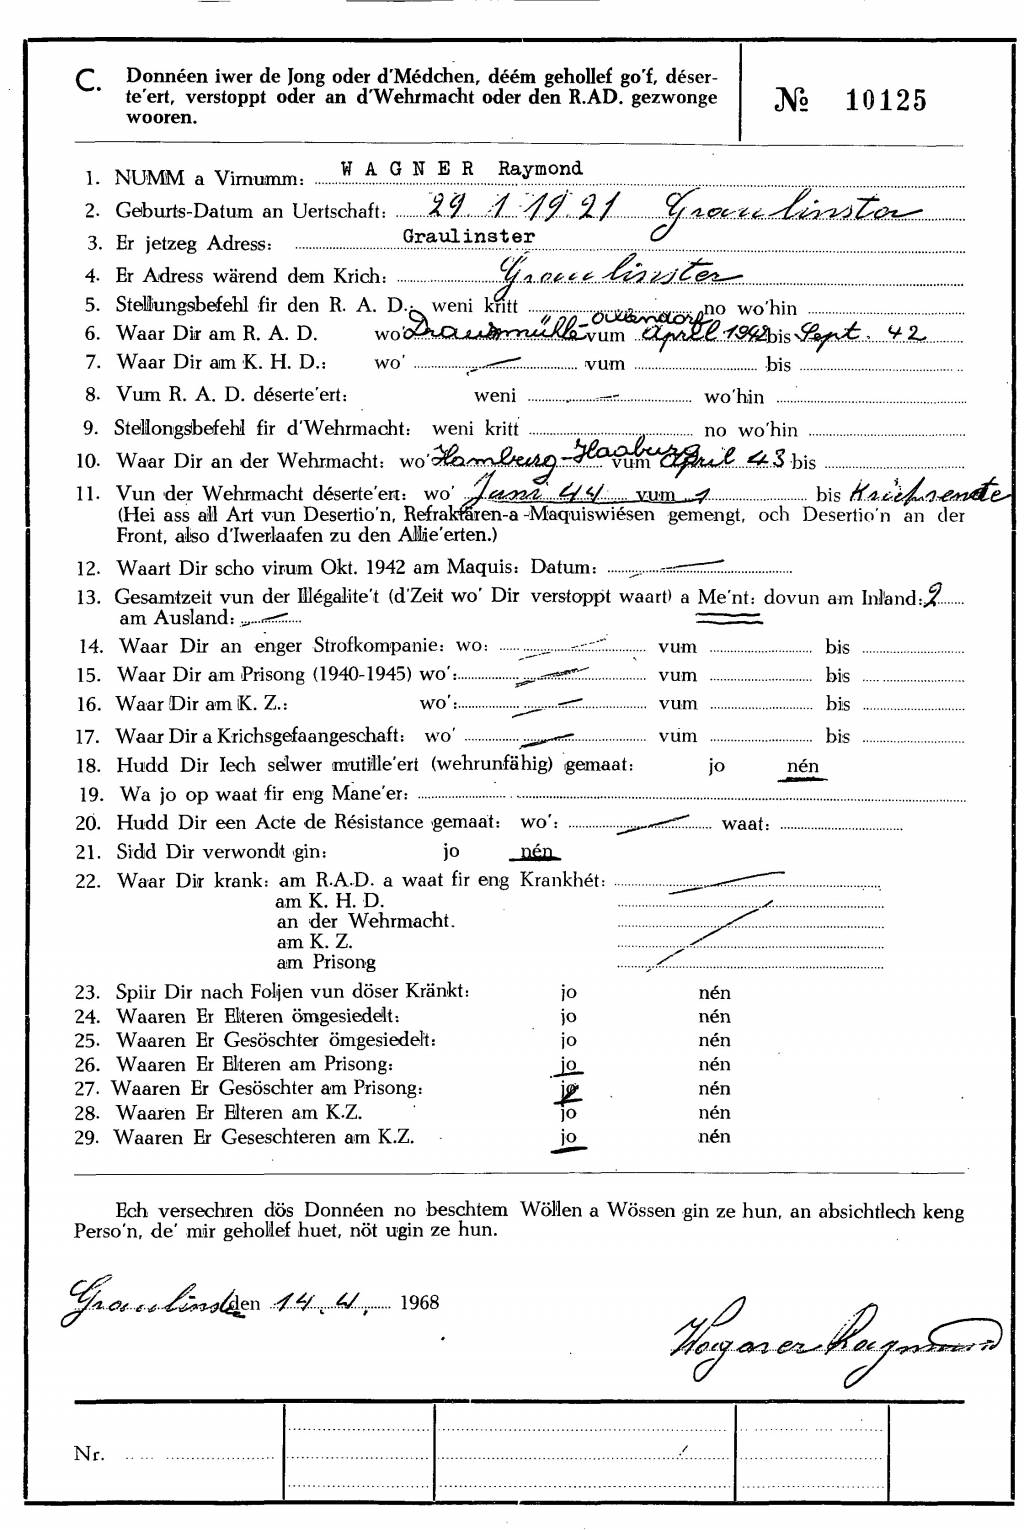 C. Donnéen iwer de Jong oder d'Médchen, déém gehollef go'f, déser-
te'ert, verstoppt oder an d'Wehrmacht oder den R.AD. gezwonge
wooren.
№ 10125
1. NUMM a Virnumm: WAGNER Raymond
2. Geburts-Datum an Uertschaft: 29. 1. 1921 Graulinster
3. Er jetzeg Adress: Graulinster
4. Er Adress wärend dem Krich: Graulinster
5. Stellungsbefehl fir den R. A. D.: weni kritt no wo'hin
6. Waar Dir am R. A. D. wo' vum April 1942 bis Sept. 42
7. Waar Dir am K. H. D.: wo' — vum bis
8. Vum R. A. D. déserte'ert: weni — wo'hin
9. Stellongsbefehl fir d'Wehrmacht: weni kritt no wo'hin
10. Waar Dir an der Wehrmacht: wo' Hamburg-Haaburg vum April 43 bis
11. Vun der Wehrmacht déserte'ert: wo' Juni 44 vum bis Krichsende
(Hei ass all Art vun Desertio'n, Refraktären-a-Maquiswiésen gemengt, och Desertio'n an der
Front, also d'Iwerlaafen zu den Allie'erten.)
12. Waart Dir scho virum Okt. 1942 am Maquis: Datum: —
13. Gesamtzeit vun der Illégalite't (d'Zeit wo' Dir verstoppt waart) a Me'nt: dovun am Inland: 2
am Ausland: —
14. Waar Dir an enger Strofkompanie: wo: — vum bis
15. Waar Dir am Prisong (1940-1945) wo': — vum bis
16. Waar Dir am K. Z.: wo': — vum bis
17. Waar Dir a Krichsgefaangeschaft: wo' — vum bis
18. Hudd Dir Iech selwer mutille'ert (wehrunfähig) gemaat: jo nén
19. Wa jo op waat fir eng Mane'er:
20. Hudd Dir een Acte de Résistance gemaat: wo': — waat:
21. Sidd Dir verwondt gin: jo nén
22. Waar Dir krank: am R.A.D. a waat fir eng Krankhét: —
am K. H. D.
an der Wehrmacht.
am K. Z.
am Prisong
23. Spiir Dir nach Foljen vun döser Kränkt: jo nén
24. Waaren Er Elteren ömgesiedelt: jo nén
25. Waaren Er Gesöschter ömgesiedelt: jo nén
26. Waaren Er Elteren am Prisong: jo nén
27. Waaren Er Gesöschter am Prisong: jo nén
28. Waaren Er Elteren am K.Z. jo nén
29. Waaren Er Geseschteren am K.Z. jo nén
Ech versechren dös Donnéen no beschtem Wöllen a Wössen gin ze hun, an absichtlech keng
Perso'n, de' mir gehollef huet, nöt ugin ze hun.
Graulinster den 14. 4. 1968
Wagner Raymond
Nr.